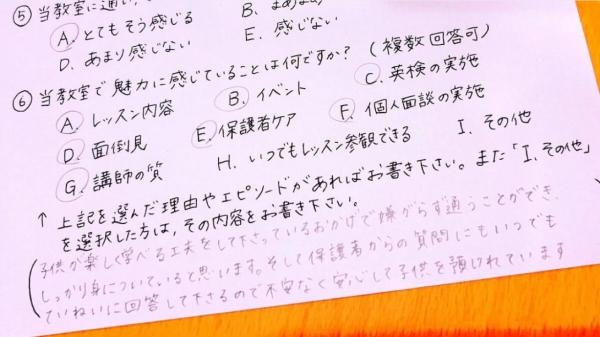 ⑤ 当教室に通い
A. とてもそう感じる B. まあまあ
D. あまり感じない E. 感じない
⑥ 当教室で魅力に感じていることは何ですか? (複数回答可)
A. レッスン内容 B. イベント C. 英検の実施
D. 面倒見 E. 保護者ケア F. 個人面談の実施
G. 講師の質 H. いつでもレッスン参観できる I. その他
↑ 上記を選んだ理由やエピソードがあればお書き下さい。また「I. その他」
を選択した方は、その内容をお書き下さい。
子供が楽しく学べる工夫をして下さっているおかげで嫌がらず通うことができ、
しっかり身についていると思います。そして保護者からの質問にもいつでも
ていねいに回答して下さるので不安なく安心して子供を預けれています